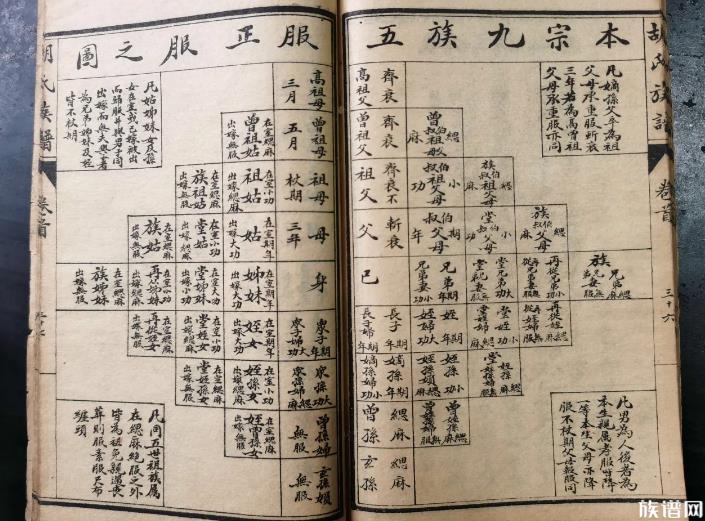 胡氏族譜
卷首
三十六
本宗九族五
服正服之圖
凡嫡孫父卒為祖
父母承重服斬衰
三年若為高曾祖
父母承重服亦同
高祖父
齊衰
曾祖父
齊衰
曾叔伯祖父母
緦麻
祖父
齊衰不
叔伯祖父母
小功
族叔伯祖父母
緦麻
父
斬衰
叔伯父母
期年
堂叔伯父母
小功
族叔伯父母
緦麻
己
兄弟期年
兄弟妻小功
堂兄弟大功
再從兄弟小功
族兄弟緦麻
族兄弟妻無服
長子期年
長子婦期年
姪期年
姪婦大功
堂姪小功
堂姪婦緦麻
再從姪緦麻
嫡孫期年
嫡孫婦小功
姪孫小功
姪孫婦緦麻
堂姪孫緦麻
堂姪孫婦無服
曾孫
緦麻
曾姪孫緦麻
玄孫
緦麻
凡男為人後者為
本生親属孝服皆降
一等本生父母亦降
服不杖期父母報服同
高祖母
三月
曾祖母
五月
曾祖姑
在室緦麻
出嫁無服
祖母
杖期
祖姑
在室小功
出嫁緦麻
族祖姑
在室緦麻
出嫁無服
母
三年
姑
在室期年
出嫁大功
堂姑
在室小功
出嫁緦麻
族姑
在室緦麻
出嫁無服
身
姊妹
在室期年
出嫁大功
堂姊妹
在室大功
出嫁小功
再姊妹
在室小功
出嫁緦麻
族姊妹
在室緦麻
出嫁無服
衆子期年
衆子婦大功
姪女
在室期年
出嫁大功
堂姪女
在室小功
出嫁緦麻
再從姪女
在室緦麻
出嫁無服
衆孫大功
衆孫婦緦麻
姪孫女
在室小功
出嫁緦麻
堂姪孫女
在室緦麻
出嫁無服
曾孫婦
無服
姪曾孫女
在室緦麻
出嫁無服
玄孫婦
無服
凡姑姊妹女及孫
女在室或已嫁被出
而歸服并與男子同
出嫁而無夫與子者
為兄弟姊妹及姪
皆不杖期
凡同五世祖族属
在緦麻絕服之外
皆為袒免親遇喪
葬則服素服尺布
纏頭
胡氏族譜
卷首
族谱网